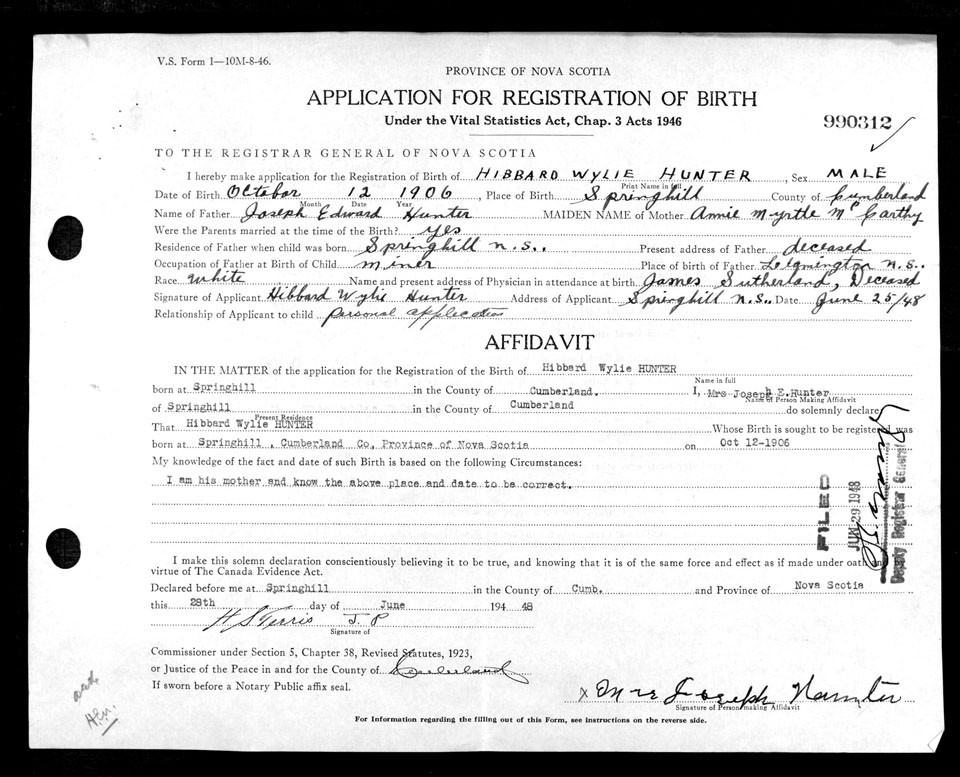 V.S. Form 1—10M-8-46.
PROVINCE OF NOVA SCOTIA
APPLICATION FOR REGISTRATION OF BIRTH
Under the Vital Statistics Act, Chap. 3 Acts 1946
990312
TO THE REGISTRAR GENERAL OF NOVA SCOTIA
I hereby make application for the Registration of Birth of HIBBARD WYLIE HUNTER, Sex MALE
Print Name in full
Date of Birth October 12 1906, Place of Birth Springhill County of Cumberland
Month Date Year
Name of Father Joseph Edward Hunter MAIDEN NAME of Mother Annie Myrtle McCarthy
Were the Parents married at the time of the Birth? yes
Residence of Father when child was born Springhill N.S.. Present address of Father deceased
Occupation of Father at Birth of Child miner Place of birth of Father Leamington N.S..
Race White Name and present address of Physician in attendance at birth James Sutherland, Deceased
Signature of Applicant Hibbard Wylie Hunter Address of Applicant Springhill N.S.. Date June 25/48
Relationship of Applicant to child personal application
AFFIDAVIT
IN THE MATTER of the application for the Registration of the Birth of Hibbard Wylie HUNTER
Name in full
born at Springhill in the County of Cumberland. I, Mrs Joseph E.Hunter
Name of Person Making Affidavit
of Springhill in the County of Cumberland do solemnly declare
Present Residence
That Hibbard Wylie HUNTER Whose Birth is sought to be registered was
born at Springhill , Cumberland Co, Province of Nova Scotia on Oct 12-1906
My knowledge of the fact and date of such Birth is based on the following Circumstances:
I am his mother and know the above place and date to be correct.
FILED
JUN 29 1948
Deputy Registrar General
I make this solemn declaration conscientiously believing it to be true, and knowing that it is of the same force and effect as if made under oath
virtue of The Canada Evidence Act.
Declared before me at Springhill in the County of Cumb. and Province of Nova Scotia
this 28th day of June 194 48
H S Terris J. P
Signature of
Commissioner under Section 5, Chapter 38, Revised Statutes, 1923,
or Justice of the Peace in and for the County of Cumberland
If sworn before a Notary Public affix seal.
x Mrs Joseph Hunter
Signature of Person making Affidavit
For Information regarding the filling out of this Form, see instructions on the reverse side.